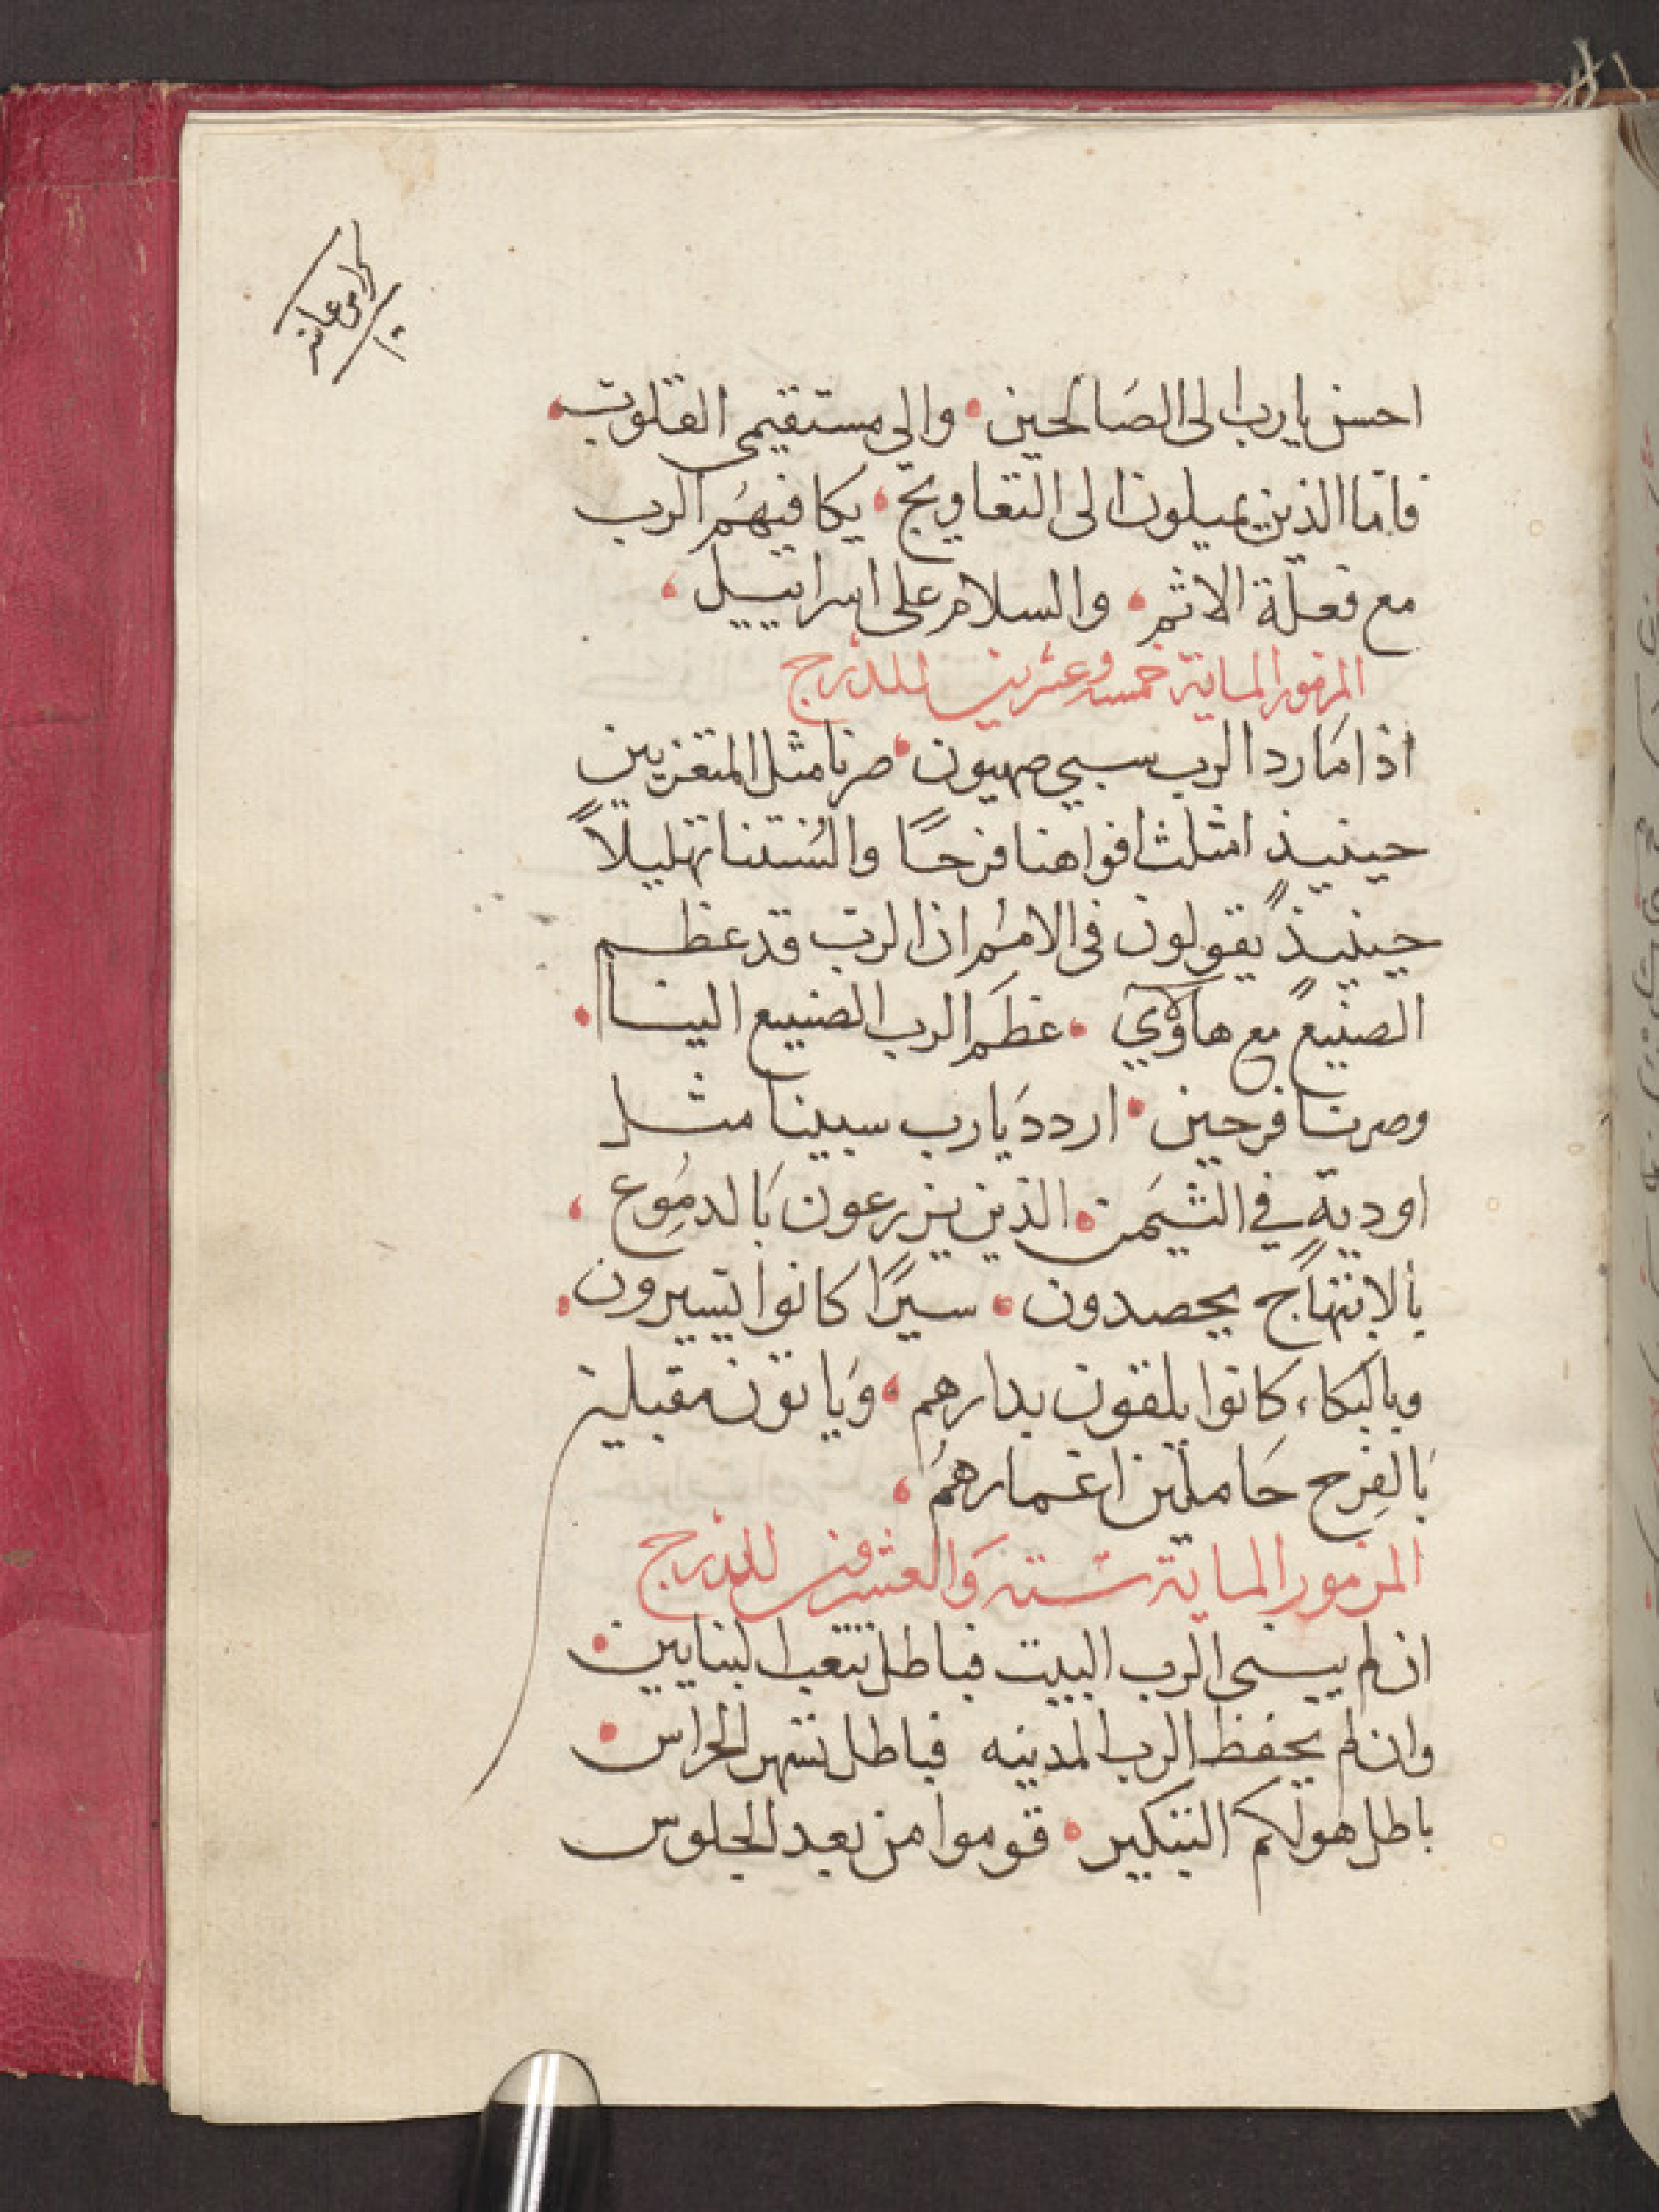 احسن يارب الى الصَالحين • والى مستقيمى القلوب •
فاما الذين يميلون الى التعاويج • يكافيهَم الرب
مع فعلة الاثم • والسلام على اسراييل •
المزمور الماية خمسه وعشرين للدرج
اذا مَا رد الرب سبي صهيون • صرنا مثل المتعزيين
حينيذٍ امتلت افواهنا فرحًا والسُنتنا تهليلاً
حينيذٍ يقولون فى الامم ان الرب قد عظم
الصنيع مع هاولآي • عظَم الرب الصنيع الينا •
وصرنا فرحين • اردد يَارب سبينا مثل
اودية في التيمَن • الذين يزرعون بَالدموع •
بالابتهاج يحصدون • سيرًا كانوا يسيرون •
وبالبكاء كانوا يلقون بدارهم • وَياتون مقبلين
بَالفرح حَاملين اغمارهمُ •
المزمور الماية ستة وَالعشرون للدرج
ان لم يبنى الرب البيت فباطل تتعب البنايين •
وان لم يحفظ الرب المدينه فباطل تسهر الحراس •
باطل هو لكم التبكير • قوموا من بعد الجلوس